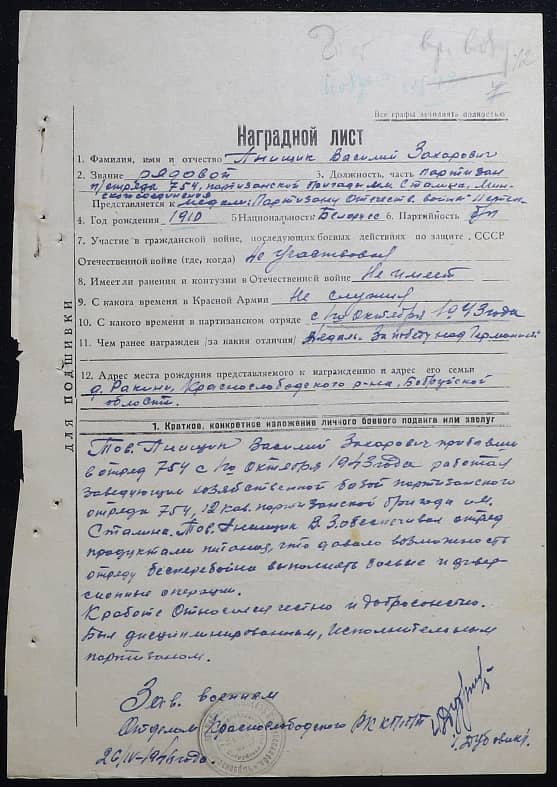 Все графы заполнять полностью
Наградной лист
1. Фамилия, имя и отчество Василий Захарович
2. Звание рядовой 3. Должность, часть партизан
п/отряда 754, партизанской бригады им Сталина, Мин-
Представляется к медали: Партизану Отечеств. войны"
4. Год рождения 1910 5 Национальность Белорусс 6. Партийность б/п
7. Участие в гражданской войне, последующих боевых действиях по защите СССР
Отечественной войне (где, когда) Не участвовал
8. Имеет ли ранения и контузии в Отечественной войне Не имеет
9. С какога времени в Красной Армии Не служил
10. С какого времени в партизанском отряде с 1го Октября 1943 года
11. Чем ранее награжден /за какия отличия/ Медаль За победу над Германией
12. Адрес места рождения представляемого к награждению и адрес его семьи
д. Ракини, Краснослободского р-на, Бобруйской
области.
ДЛЯ ПОДШИВКИ
1. Краткое, конкретное изложение личного боевого подвига или заслуг
Тов. Василий Захарович прибывши
в отряд 754 с 1го Октября 1943 года работал
заведующим хозяйственной базой партизанского
отряда 754, 12 кав. партизанской бригады им.
Сталина. Тов. В.З. обеспечивал отряд
продуктами питания, что давало возможность
отряду бесперебойно выполнять боевые и дивер-
сионные операции.
К работе относился честно и добросовестно.
Был дисциплинированным, исполнительным
партизаном.
Зав. военным
Отделом Краснослободского РК КП/б/Б
/Дубовик/.